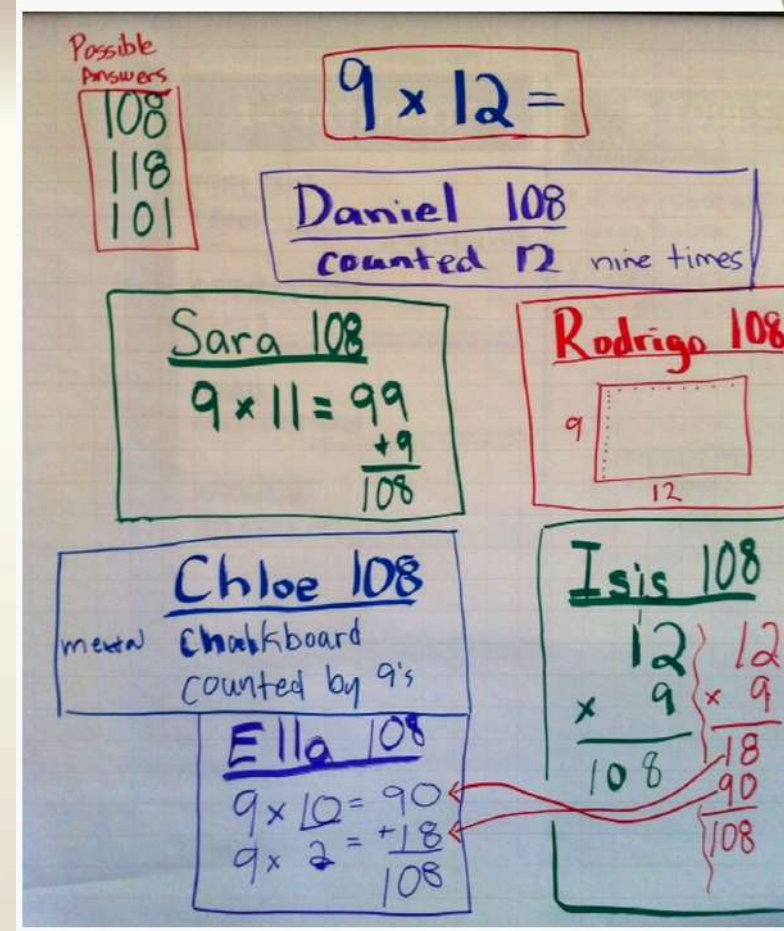 Possible
Answers
108
118
101
9 × 12 =
Daniel 108
counted 12 nine times
Sara 108
9 × 11 = 99
+9
108
Rodrigo 108
9
12
Chloe 108
mental chalkboard
counted by 9's
Ella 108
9 × 10 = 90
9 × 2 = +18
108
Isis 108
12
× 9
108
12
× 9
18
90
108